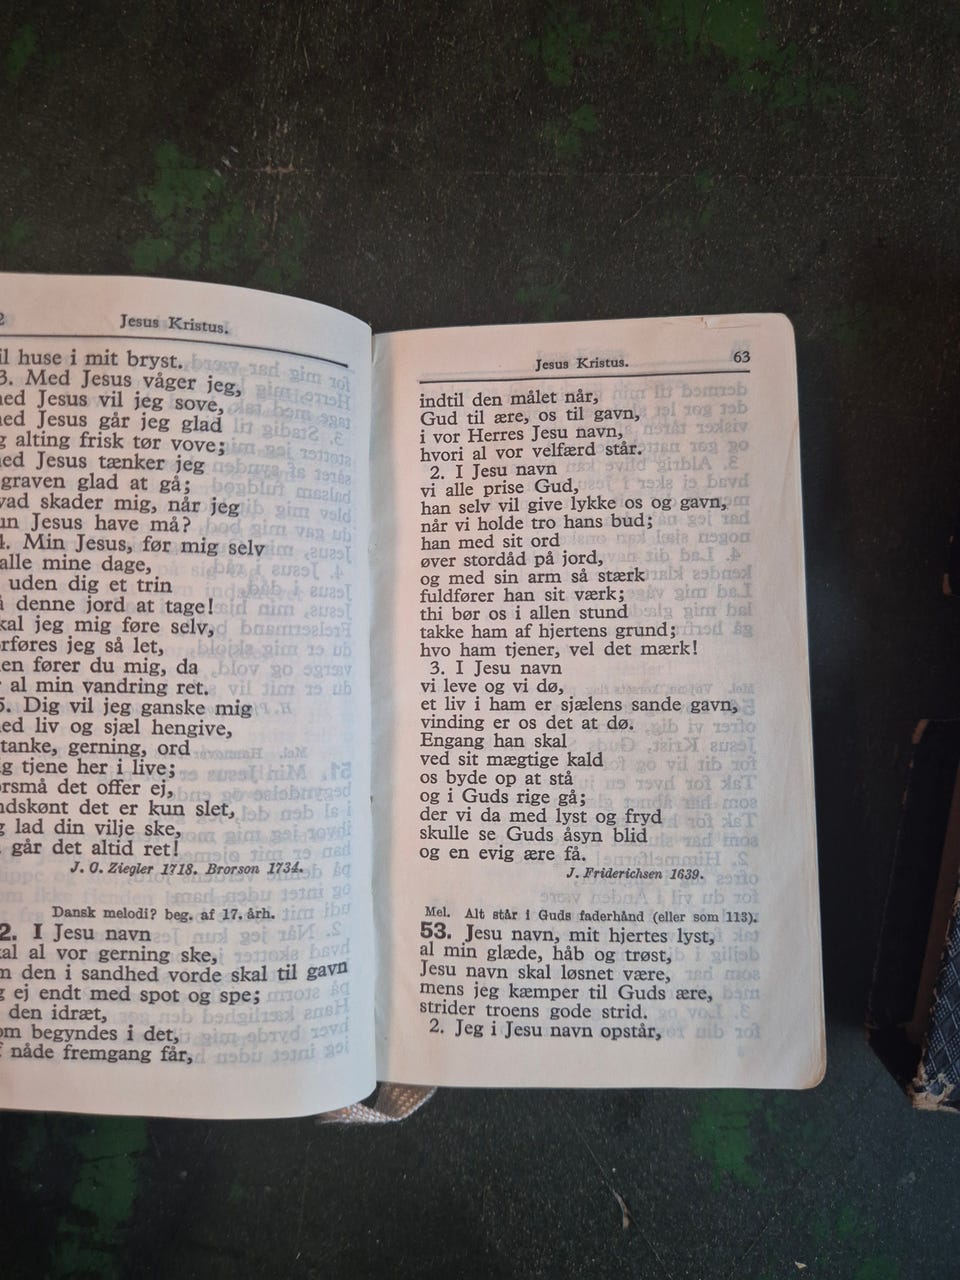 2
Jesus Kristus.
il huse i mit bryst.
3. Med Jesus våger jeg,
ned Jesus vil jeg sove,
ned Jesus går jeg glad
g alting frisk tør vove;
ned Jesus tænker jeg
graven glad at gå;
vad skader mig, når jeg
un Jesus have må?
4. Min Jesus, før mig selv
alle mine dage,
uden dig et trin
å denne jord at tage!
kal jeg mig føre selv,
rføres jeg så let,
en fører du mig, da
r al min vandring ret.
5. Dig vil jeg ganske mig
ed liv og sjæl hengive,
tanke, gerning, ord
g tjene her i live;
orsmå det offer ej,
ndskønt det er kun slet,
g lad din vilje ske,
går det altid ret!
J. G. Ziegler 1718. Brorson 1734.
Dansk melodi? beg. af 17. årh.
2. I Jesu navn
al al vor gerning ske,
m den i sandhed vorde skal til gavn
g ej endt med spot og spe;
den idræt,
om begyndes i det,
f nåde fremgang får,
Jesus Kristus. 63
indtil den målet når,
Gud til ære, os til gavn,
i vor Herres Jesu navn,
hvori al vor velfærd står.
2. I Jesu navn
vi alle prise Gud,
han selv vil give lykke os og gavn,
når vi holde tro hans bud;
han med sit ord
øver stordåd på jord,
og med sin arm så stærk
fuldfører han sit værk;
thi bør os i allen stund
takke ham af hjertens grund;
hvo ham tjener, vel det mærk!
3. I Jesu navn
vi leve og vi dø,
et liv i ham er sjælens sande gavn,
vinding er os det at dø.
Engang han skal
ved sit mægtige kald
os byde op at stå
og i Guds rige gå;
der vi da med lyst og fryd
skulle se Guds åsyn blid
og en evig ære få.
J. Friderichsen 1639.
Mel. Alt står i Guds faderhånd (eller som 113).
53. Jesu navn, mit hjertes lyst,
al min glæde, håb og trøst,
Jesu navn skal løsnet være,
mens jeg kæmper til Guds ære,
strider troens gode strid.
2. Jeg i Jesu navn opstår,